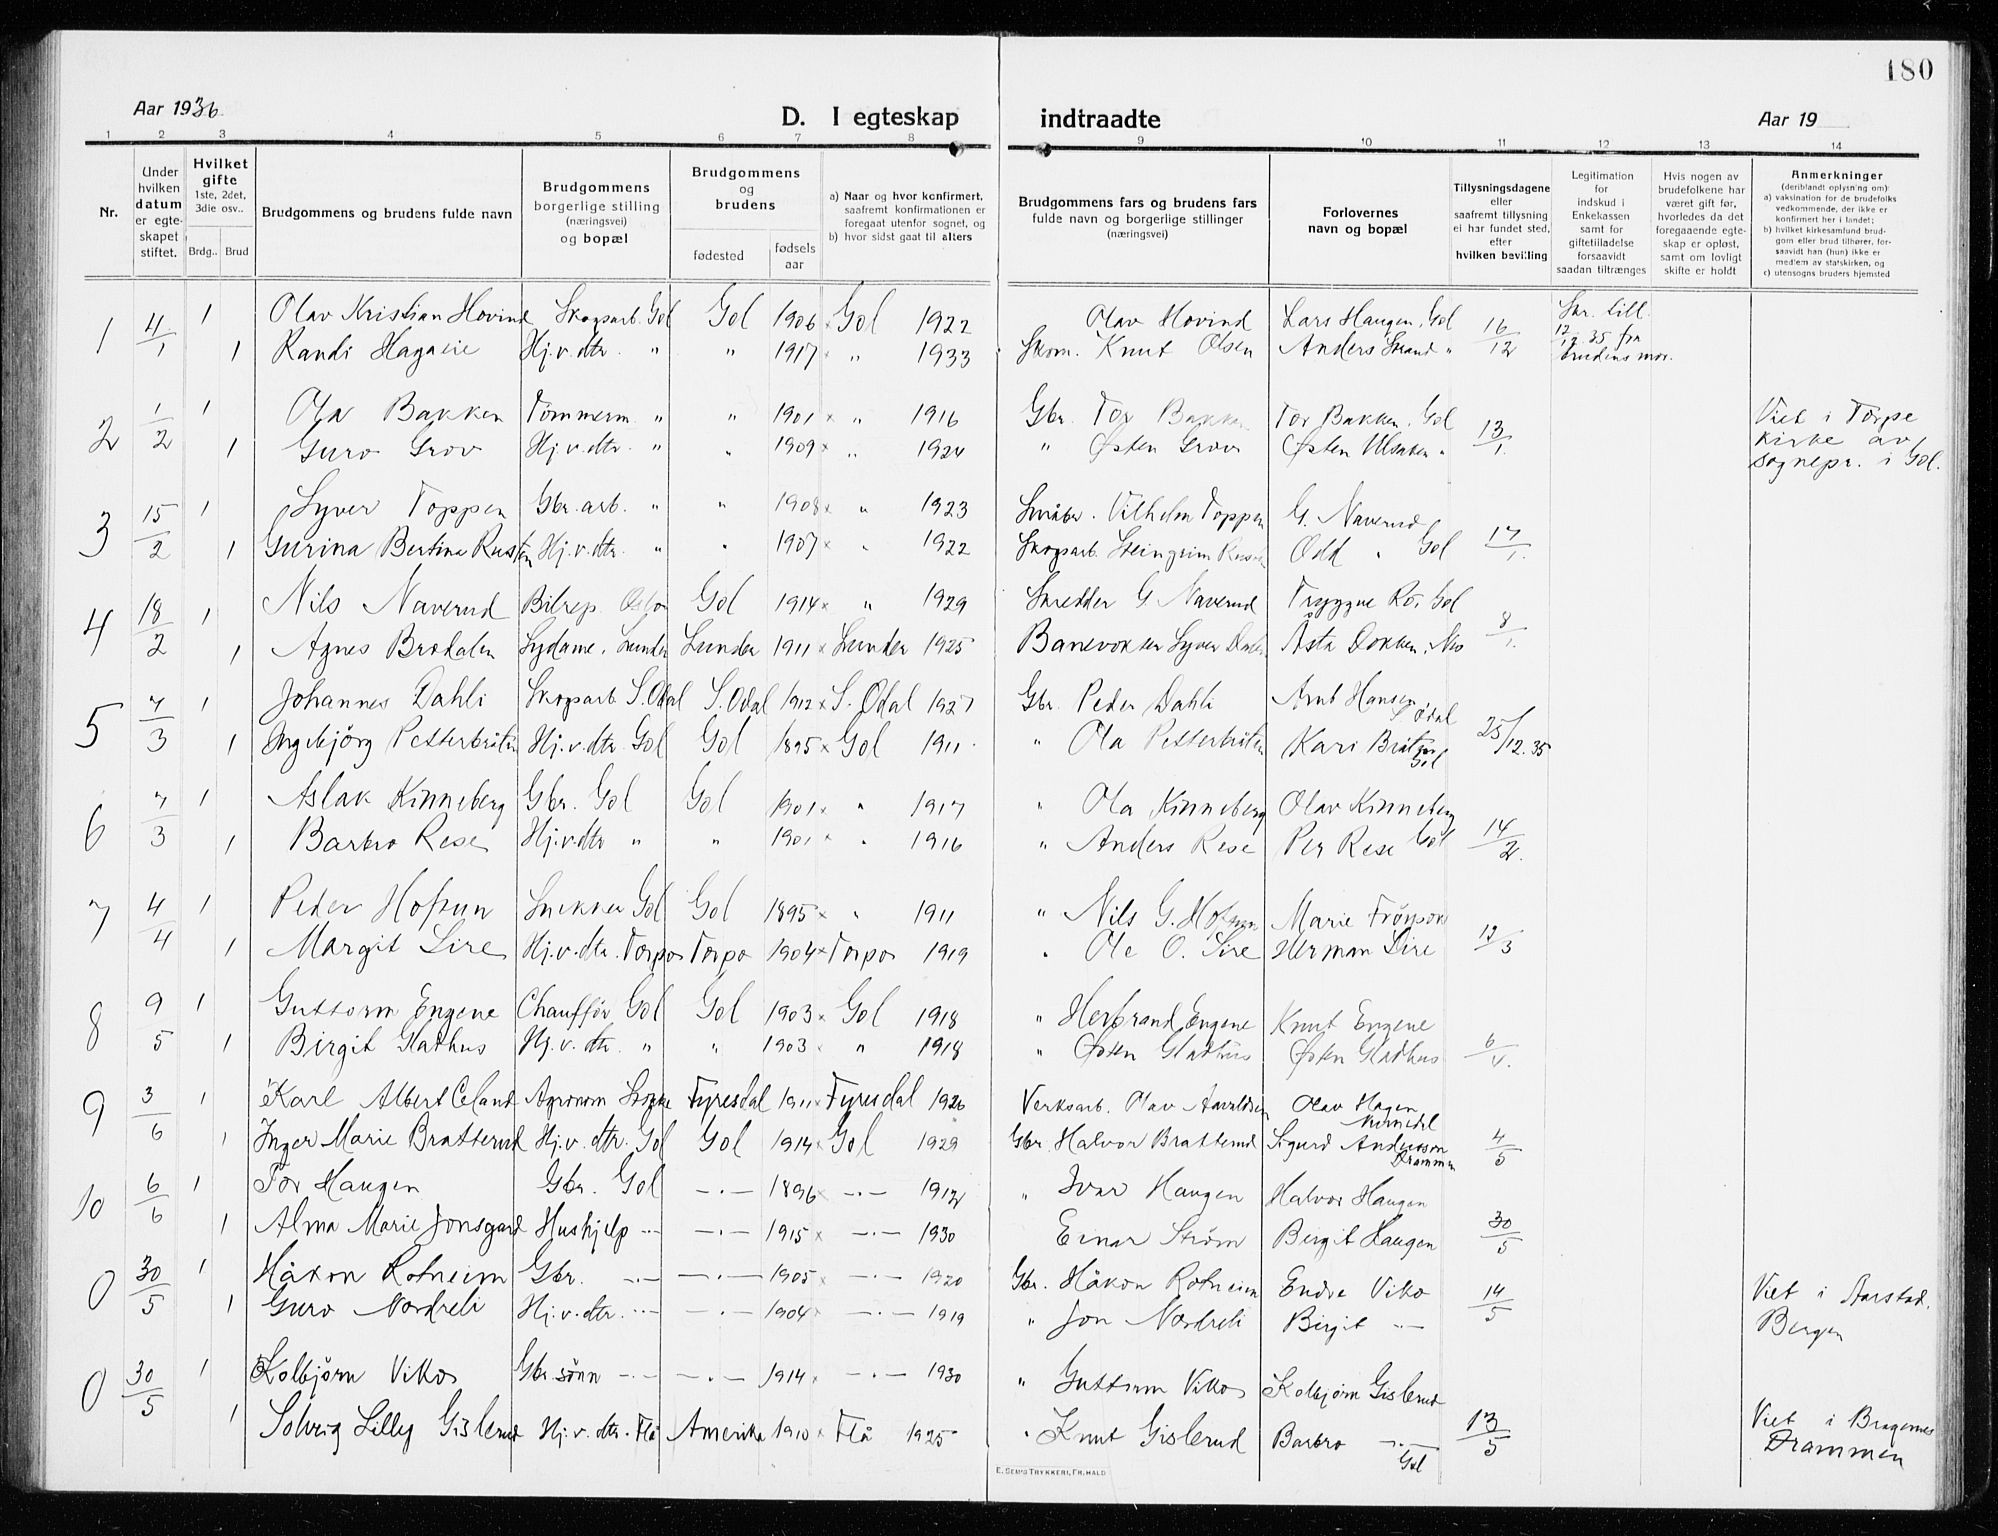 180
Aar 1936 D. I egteskap indtraadte Aar 19
1 2 3 4 5 6 7 8 9 10 11 12 13 14
Nr.
Under hvilken datum er egteskapet stiftet.
Hvilket gifte 1ste, 2det, 3die osv.. Brdg.. Brud
Brudgommens og brudens fulde navn
Brudgommens borgerlige stilling (næringsvei) og bopæl
Brudgommens og brudens fødested fødselsaar
a) Naar og hvor konfirmert, saafremt konfirmationen er foregaat utenfor sognet, og b) hvor sidst gaat til alters
Brudgommens fars og brudens fars fulde navn og borgerlige stillinger (næringsvei)
Forlovernes navn og bopæl
Tillysningsdagene eller saafremt tillysning ei har fundet sted, efter hvilken bevilling
Legitimation for indskud i Enkekassen samt for giftetilladelse forsaavidt saadan tiltrænges
Hvis nogen av brudefolkene har været gift før, hvorledes da det foregaaende egteskap er opløst, samt om lovligt skifte er holdt
Anmerkninger (deriblandt oplysning om): a) vaksination for de brudefolks vedkommende, der ikke er konfirmert her i landet; b) hvilket kirkesamfund brudgom eller brud tilhører, forsaavidt han (hun) ikke er medlem av statskirken, og c) utensogns bruders hjemsted
1 4/1 1 Olav Kristian Hovind Skogsarb. Gol Gol 1906 × Gol 1922 Olav Hovind Lars Haugen, Gol 16/12 Skr. till. 12/12 35 fra brudens mor.
1 Randi Hagaeie Hj.v.dtr. " " 1917 × " 1933 Skom. Knut Olsen Anders Strand "
2 1/2 1 Ola Bakken Tømmerm. " " 1901 × " 1916 Gbr. Tor Bakken Tor Bakken, Gol 13/1. Viet i Torpe kirke av sognepr. i Gol.
1 Guro Grov Hj.v.dtr. " " 1909 × " 1924 " Østen Grov Østen Ulsaken "
3 15/2 1 Syver Toppen Gbr. arb. " " 1908 × " 1923 Småbr. Vilhelm Toppen G. Naverud 17/1.
1 Gurina Bertina Rusten Hj.v.dtr. " " 1907 × " 1922 Skogsarb. Steingrim Rusten Odd " Gol
4 18/2 1 Nils Naverud Bilrep. Oslo Gol 1914 × " 1929 Skredder G. Naverud Tryggve Ro, Gol 8/1.
1 Agnes Brodalen Sydame. Lunder Lunder 1911 × Lunder 1925 Banevokter Syver Dalen Åsta Dokken, Nes
5 7/3 1 Johannes Dahli Skogsarb. S. Odal S. Odal 1912 × S. Odal 1927 Gbr. Peder Dahli Arnt Hansen S. Odal 25/12.35
1 Ingebjörg Petterbråten Hj.v.dtr. Gol Gol 1895 × Gol 1911 " Ola Petterbråten Kari Bråten Gol
6 7/3 1 Aslak Kinneberg Gbr. Gol Gol 1901 × " 1917 " Ola Kinneberg Olav Kinneberg 14/2.
1 Barbro Rese Hj.v.dtr " " 1901 × " 1916 " Anders Rese Per Rese Gol
7 4/4 1 Peder Hofsun Snekker Gol Gol 1895 × " 1911 " Nils G. Hofsun Marie Frøysok 12/3
1 Margit Lire Hj.v.dtr. Torpo Torpo 1904 × Torpo 1919 " Ole O. Lire Herman Lire
8 9/5 1 Guttorm Engene Chauffør Gol Gol 1903 × Gol 1918 " Herbrand Engene Knut Engene 6/4.
1 Birgit Gladhus Hj.v.dtr. " " 1903 " 1918 " Østen Gladhus Østen Gladhus
9 3/6 1 Karl Albert Celand Agronom Skoppe Fyresdal 1911 × Fyresdal 1926 Verksarb. Olav Aavoldsen Olav Hagen Numedal 4/5
1 Inger Marie Bratterud Hj.v.dtr. Gol Gol 1914 × Gol 1929 Gbr. Halvor Bratterud Sigurd Anderson Drammen
10 6/6 1 Tor Haugen Gbr. Gol —.— 1896 × —.— 1912 " Ivar Haugen Halvor Haugen 30/5
1 Alma Marie Jonsgard Hushjelp —.— —.— 1915 × —.— 1930 Einar Strøm Birgit Haugen
0 30/5 1 Håkon Rotneim Gbr. —.— —.— 1905 × —.— 1920 Gbr. Håkon Rotneim Endre Viko 14/5 Viet i Aarstad, Bergen
1 Guro Nordreli Hj.v.dtr. —.— —.— 1904 × —.— 1919 " Jon Nordreli Birgit —.—
0 30/5 1 Kolbjørn Viko Gbr. sønn —.— —.— 1914 × —.— 1930 " Guttorm Viko Kolbjørn Gislerud 13/5 Viet i Bragernes Drammen
1 Solveig Lilly Gislerud Hj.v.dtr. Flå Amerika 1910 × Flå 1925 " Knut Gislerud Barbro —.— Gol
E. Sem's Trykkeri, Fr.hald